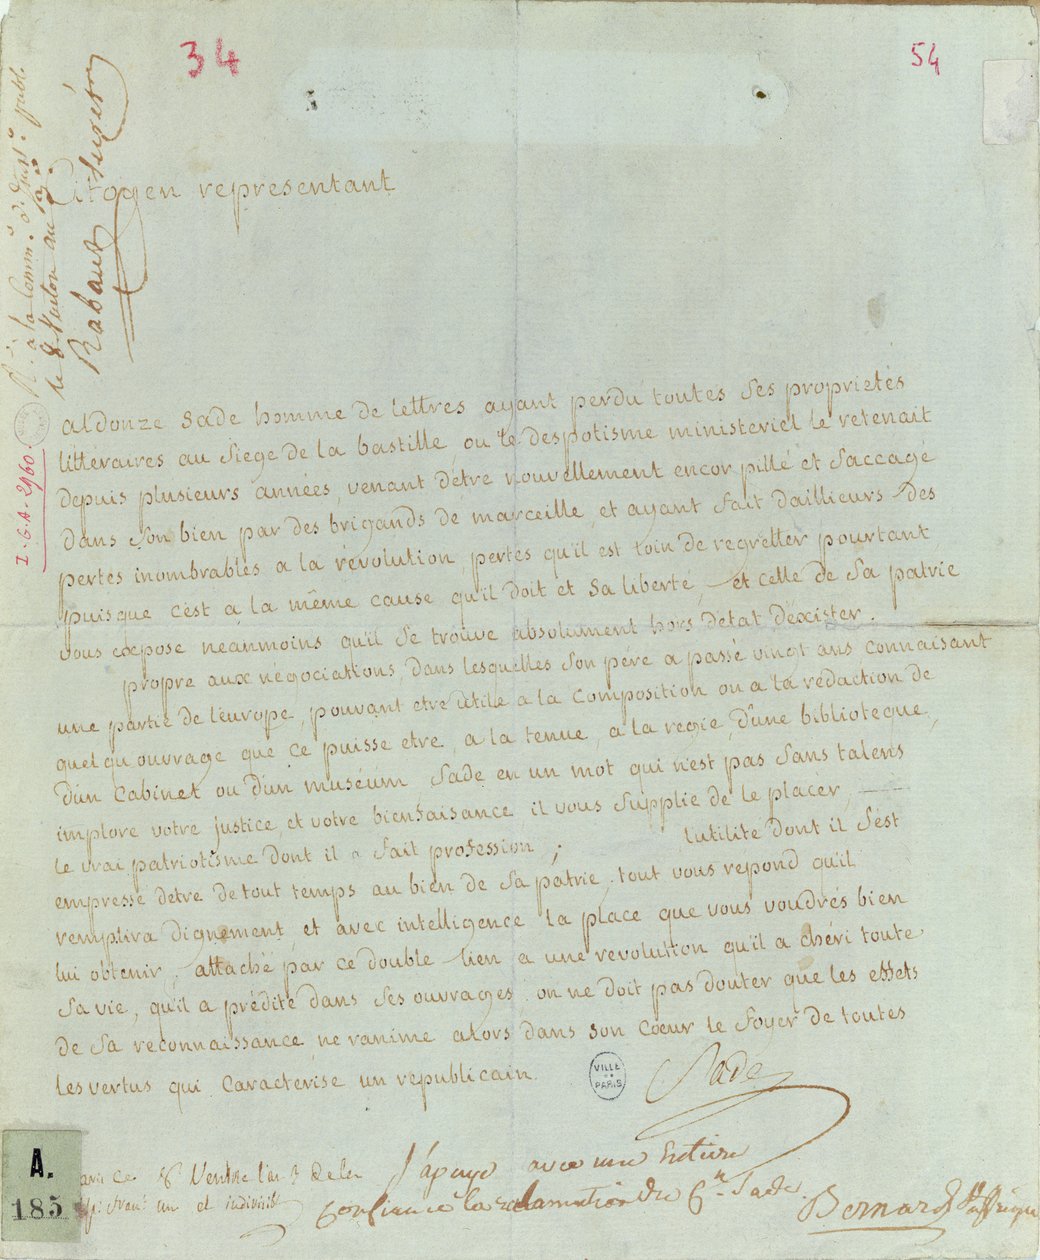 34
54
R. à la Comm.on d'inst.on publ.
le 8
Rabaut
I. G. A. 2960.
Citoyen representant
aldonze Sade homme de lettres ayant perdu toutes ses proprietés
littéraires au siege de la bastille, ou le despotisme ministeriel le retenait
depuis plusieurs années, venant d'etre nouvellement encor pillé et saccagé
dans son bien par des brigands de marceille, et ayant fait dailleurs des
pertes inombrables a la révolution, pertes qu'il est loin de regretter pourtant
puisque c'est a la même cause qu'il doit et sa liberté, et celle de sa patrie
vous expose neanmoins qu'il se trouve absolument hors d'etat d'exister.
propre aux négociations, dans lesquelles son pére a passé vingt ans, connaisant
une partie de l'europe, pouvant etre utile a la composition ou a la rédaction de
quelqu'ouvrage que ce puisse etre, a la tenue, a la regie, d'une biblioteque,
d'un cabinet ou d'un muséum, Sade en un mot qui n'est pas sans talens
implore votre justice, et votre bienfaisance, il vous supplie de le placer,
le vrai patriotisme dont il a fait profession, l'utilité dont il s'est
empressé d'etre de tout temps au bien de sa patrie, tout vous répond qu'il
remplira dignement, et avec intelligence la place que vous voudrés bien
lui obtenir, attaché par ce double lien a une revolution qu'il a chéri toute
sa vie, qu'il a prédite dans ses ouvrages, on ne doit pas douter que les effets
de sa reconnaissance, ne ranime alors dans son cœur le foyer de toutes
les vertus qui caracterise un republicain.
VILLE DE PARIS
Sade
ce 8 Ventose l'an 3 de la
un et indivisib
J'apuye avec une Entiere
confiance la reclamation du C.n Sade.
Bernard
A.
185